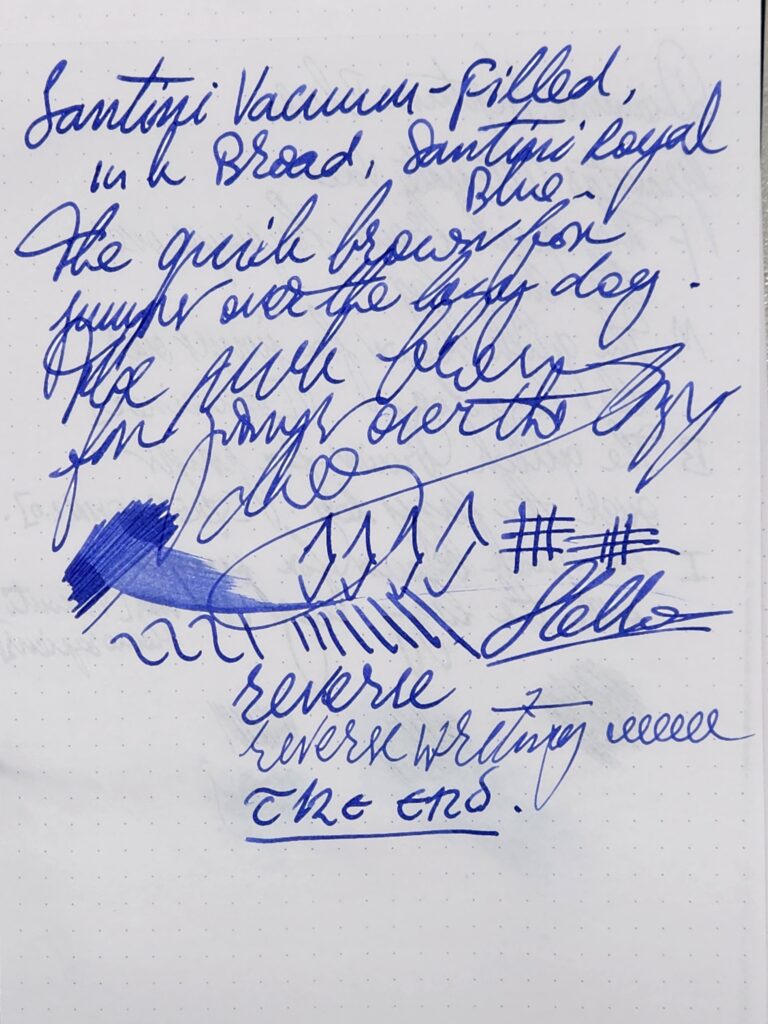 Santini Vacuum-Filled,
in k Broad, Santini Royal
Blue.
The quick brown fox
jumps over the lazy dog.
The quick brown
fox jumps over the lazy
dog
Hello
reverse
reverse writing
THE END.